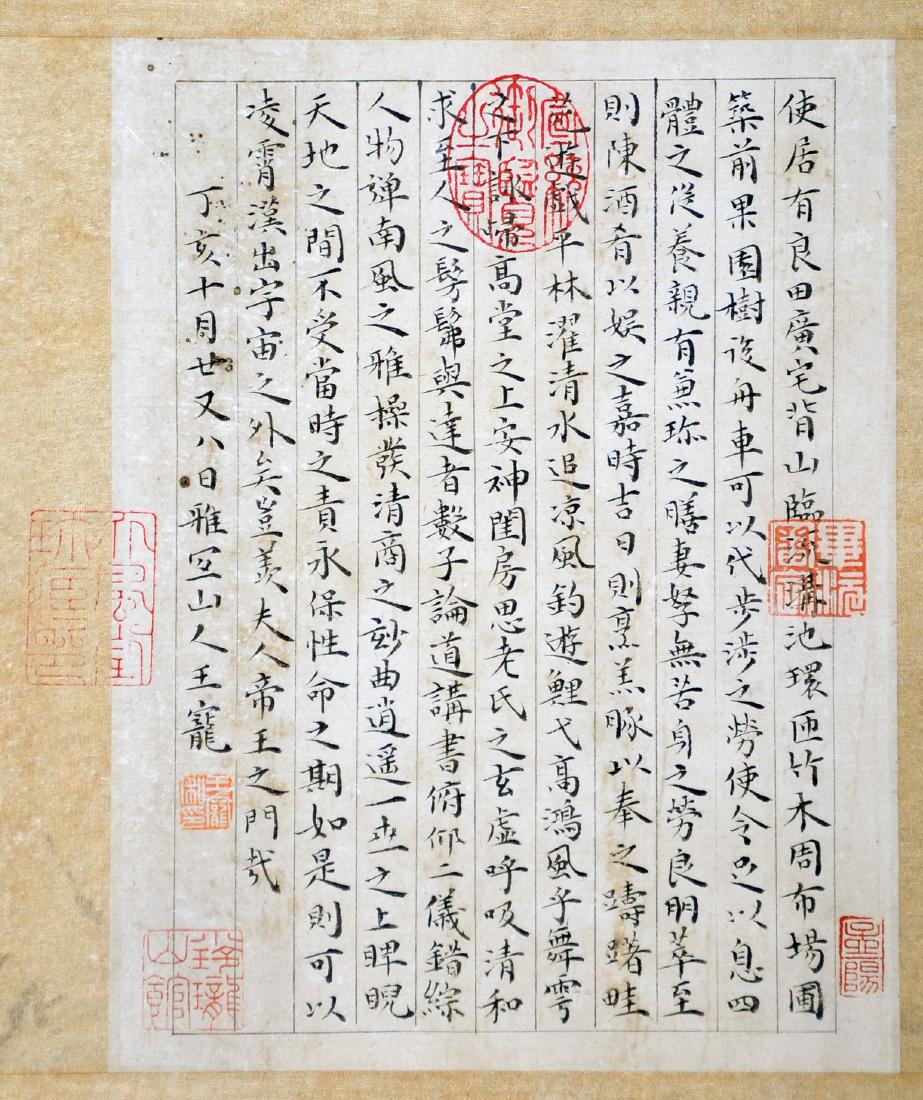 使居有良田廣宅背山臨流溝池環匝竹木周布場圃
築前果園樹後舟車可以代步涉之勞使令足以息四
體之役養親有兼珍之膳妻孥無苦身之勞良朋萃至
則陳酒肴以娛之嘉時吉日則烹羔豚以奉之躊躇畦
苑遊戲平林濯清水追涼風釣遊鯉弋高鴻風乎舞雩
之下詠歸高堂之上安神閨房思老氏之玄虛呼吸清和
求至人之髣髴與達者數子論道講書俯仰二儀錯綜
人物彈南風之雅操發清商之玅曲逍遥一世之上睥睨
天地之間不受當時之責永保性命之期如是則可以
凌霄漢出宇宙之外矣豈羨夫入帝王之門哉
丁亥十月廿又八日雅宜山人王寵
畢沅審定
孟陽